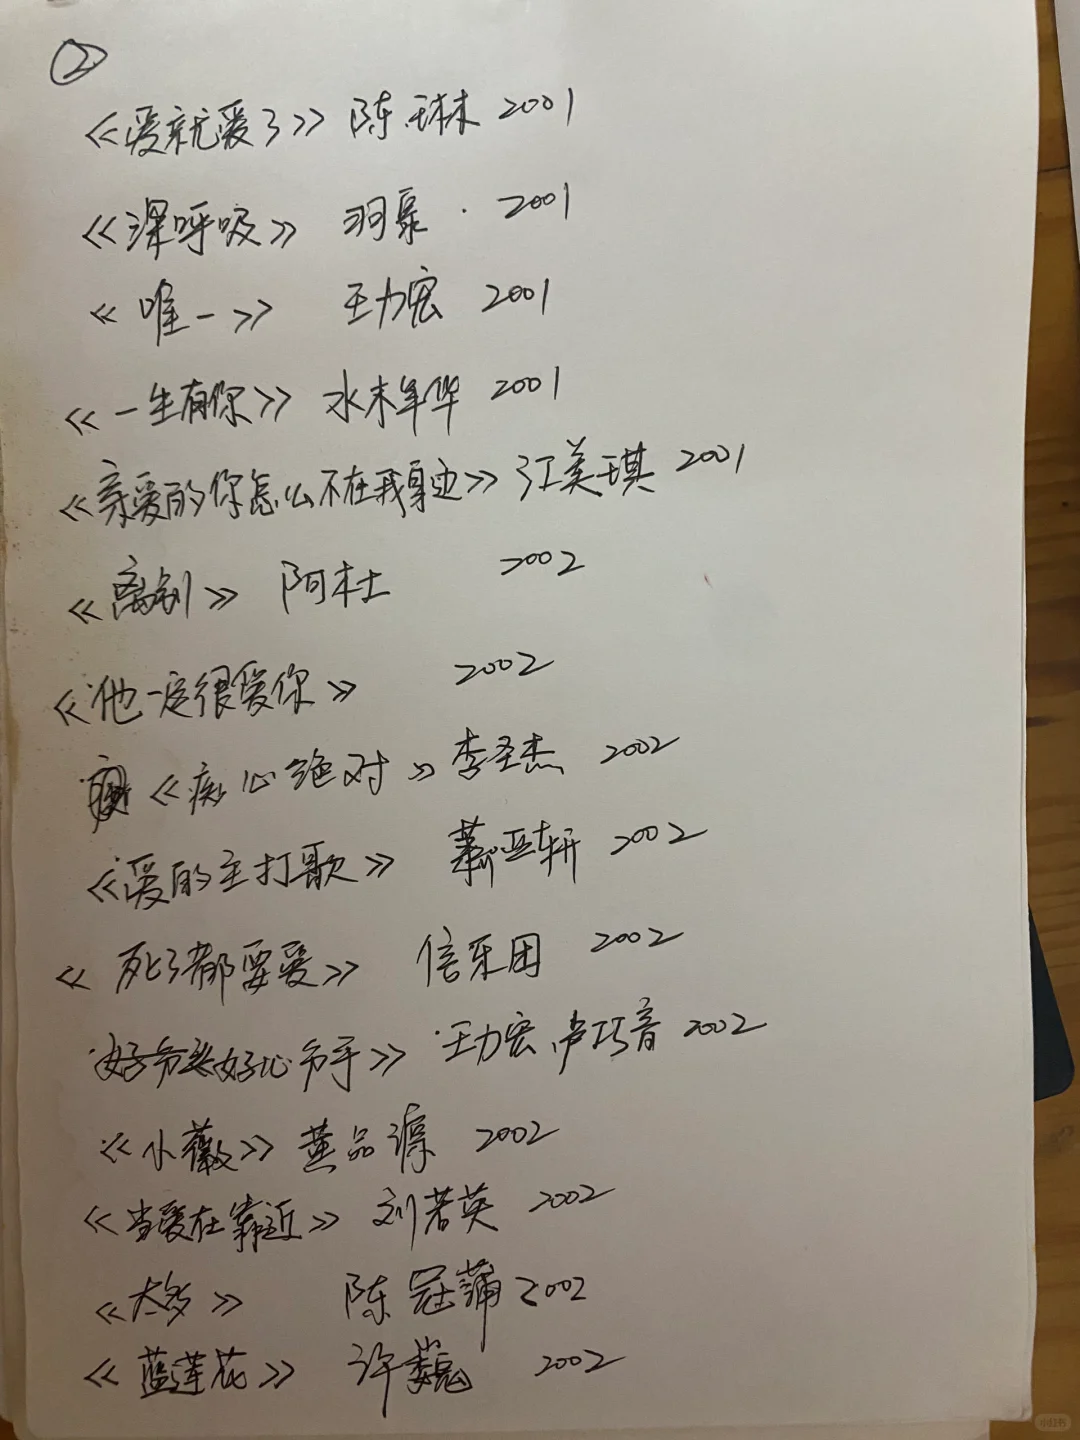 ②
《爱就爱了》 陈琳 2001
《深呼吸》 羽泉 · 2001
《唯一》 王力宏 2001
《一生有你》 水木年华 2001
《亲爱的你怎么不在我身边》 江美琪 2001
《离别》 阿杜 2002
《他一定很爱你》 2002
《痴心绝对》 李圣杰 2002
《爱的主打歌》 萧亚轩 2002
《死了都要爱》 信乐团 2002
好心分手》 王力宏、卢巧音 2002
《小薇》 黄品源 2002
《当爱在靠近》 刘若英 2002
《太多》 陈冠蒲 2002
《蓝莲花》 许巍 2002
小红书